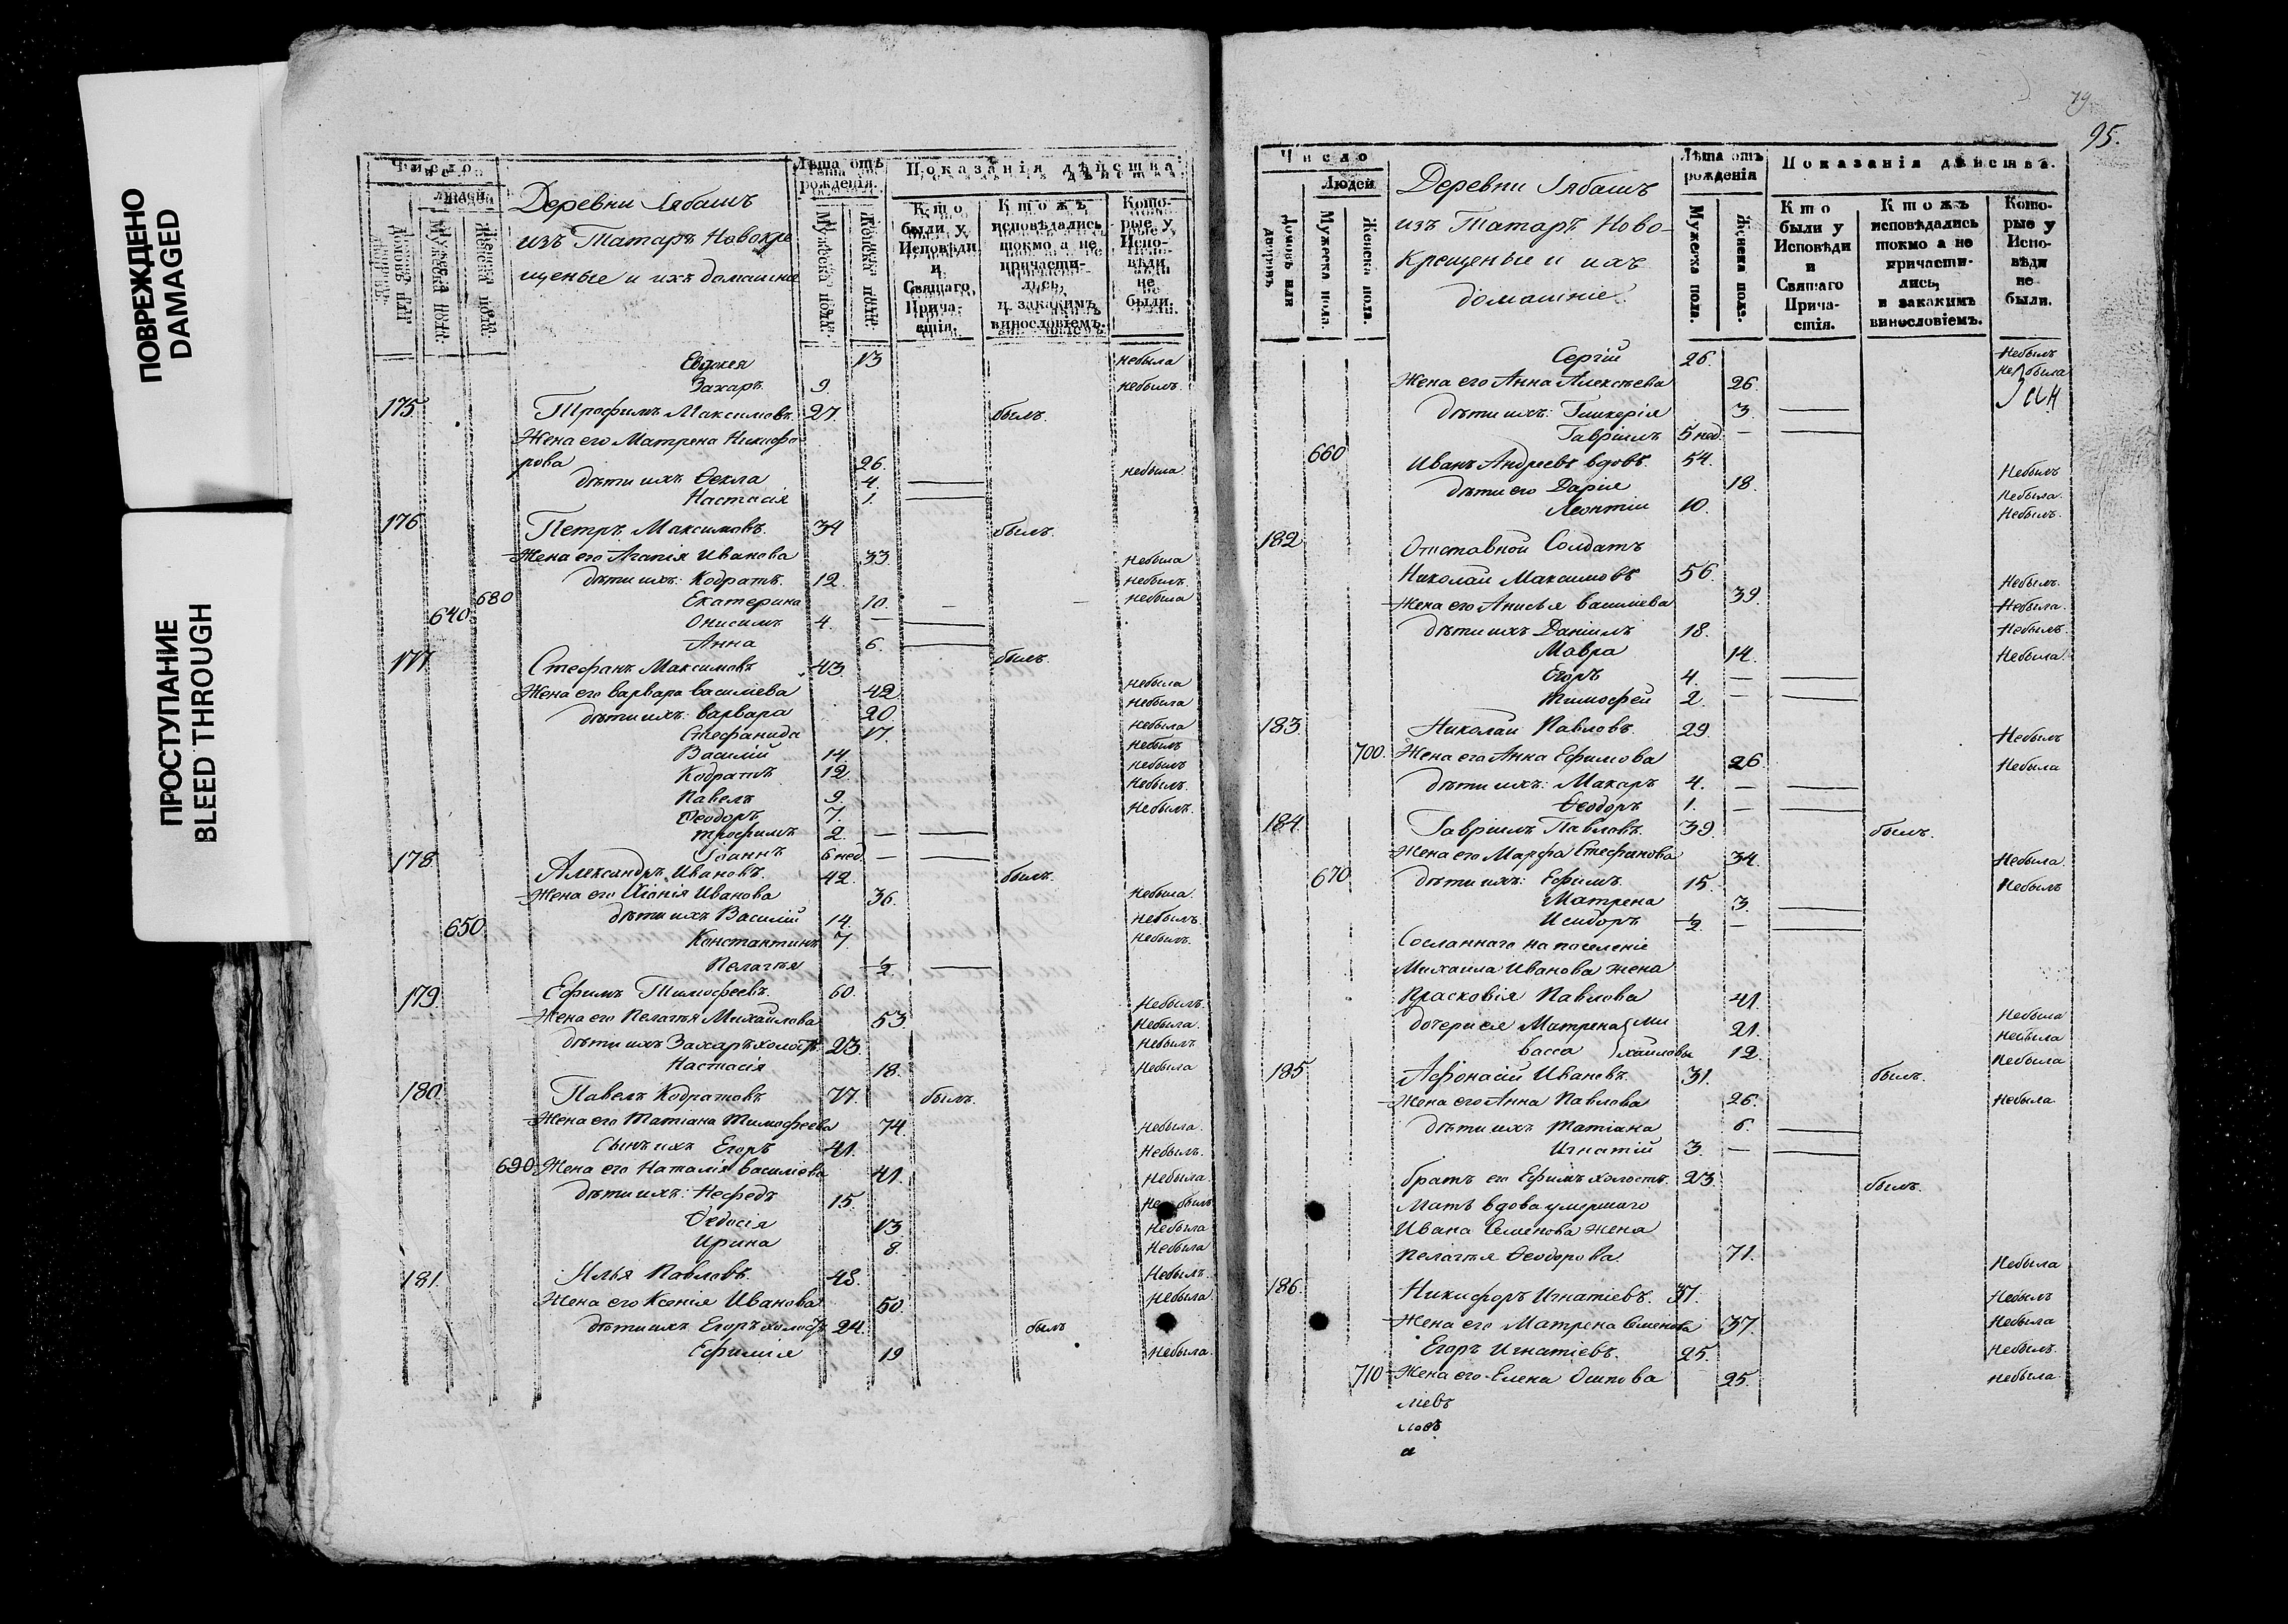 ПОВРЕЖДЕНО
DAMAGED
ПРОСТУПАНИЕ
BLEED THROUGH
Число
Людей
Домовъ или дворовъ.
Мужеска пола.
Женска пола.
Деревни Лябашъ
изъ Татаръ Новокре
щеные и ихъ домашніе
Лѣта отъ рожденія.
Мужеска пола.
Женска пола.
Показанія дѣйства.
Кто были у Исповѣди и Святаго Прича-стія.
Ктожъ исповѣдались токмо а не причасти-лись, и закакимъ винословіемъ.
Кото-рые у Испо-вѣди не были.
Евдокея 13 небыла
Захаръ. 9 небылъ.
175 Трофимъ Максимовъ. 27. былъ.
Жена его Матрена Никифо
рова 26. небыла
дѣти ихъ Ѳекла 4. —
Настасія 1. —
176 Петръ Максимовъ. 34 былъ.
Жена его Агапія Иванова 33. небыла
дѣти ихъ: Кодратъ. 12. небылъ.
680 Екатерина 10. небыла
640. Онисимъ 4. —
Анна 6. —
177. Стефанъ Максимовъ 43. былъ.
Жена его Варвара Василіева 42 небыла
дѣти ихъ: Варвара 20 небыла
Стефанида 17. небыла
Василій 14 небылъ
Кодратъ 12 небылъ
Павелъ 9 небылъ.
Ѳеодоръ 7. небылъ.
Трофимъ 2. — —
Іоаннъ 6 нед. — —
178. Александръ Ивановъ. 42. былъ.
Жена его Хіонія Иванова 36. небыла.
дѣти ихъ Василій 14. небылъ
650. Константинъ 7 небылъ.
Пелагѣя ½. —
179. Ефимъ Тимофеевъ. 60. Небылъ.
Жена его Пелагѣя Михайлова 53 Небыла.
дѣти ихъ Захаръ холостъ. 23. Небылъ
Настасія 18. Небыла
180. Павелъ Кодратовъ 77. былъ.
Жена его Татіана Тимофеева 74. небыла.
Сынъ ихъ Егоръ 41. Небылъ.
690 Жена его Наталія Василіева 41. Небыла.
дѣти ихъ: Нефедъ 15. Небылъ
Ѳедосія 13 Небыла
Ирина 8. Небыла
181. Илья Павловъ 48. Небылъ.
Жена его Ксенія Иванова 50. Небыла.
дѣти ихъ Егоръ холостъ 24. былъ
Ефимія 19 Небыла.
79
95.
Число
Людей
Домовъ или дворовъ.
Мужеска пола.
Женска пола.
Деревни Лябашъ
изъ Татаръ Ново-
Крещеные и ихъ
домашніе.
Лѣта отъ рожденія
Мужеска пола.
Женска пола.
Показанія дѣйства.
Кто были у Исповѣди и Святаго Прича-стія.
Ктожъ исповѣдались токмо а не причасти-лись, и закакимъ винословіемъ.
Кото-рые у Испо-вѣди не были.
Сергій 26. Небылъ
Жена его Анна Алексѣева 26. небыла
дѣти ихъ: Гликерія 3. —
Гавріилъ 5 нед. — —
660 Иванъ Андреевъ вдовъ. 54. Небылъ
дѣти его Дарія 18. Небыла.
Леонтій 10. Небылъ.
182 Отставной Солдатъ
Николай Максимовъ 56. Небылъ.
Жена его Анисья Василіева 39. Небыла.
дѣти ихъ Даніилъ 18. Небылъ.
Мавра 14. Небыла.
Егоръ 4. — —
Тимофей 2. — —
183. Николай Павловъ. 29. Небылъ
700. Жена его Анна Ефимова 26 Небыла
дѣти ихъ: Макаръ 4. — —
Ѳеодоръ 1. — —
184. Гавріилъ Павловъ. 39. былъ.
Жена его Марфа Стефанова 34. Небыла.
670 дѣти ихъ: Ефимъ. 15. Небылъ
Матрена 3. —
Исидоръ ½ — —
Сосланнаго на поселеніе
Михаила Иванова жена
Прасковія Павлова 41. Небыла
дочери ея Матрена} Ми 21. Небыла
Васса }хайловы 12. Небыла
185 Афонасій Ивановъ. 31. былъ.
Жена его Анна Павлова 26. Небыла
дѣти ихъ Татіана 6. —
Игнатій 3. — —
братъ его Ефимъ холостъ. 23 былъ.
Мать вдова умершаго
Ивана Семенова жена
Пелагѣя Ѳеодорова. 71. Небыла
186. Никифоръ Игнатіевъ. 37. Небылъ
Жена его Матрена Семенова 37. Небыла
Егоръ Игнатіевъ. 25. Небылъ.
710 Жена его Елена Осипова 25. небыла